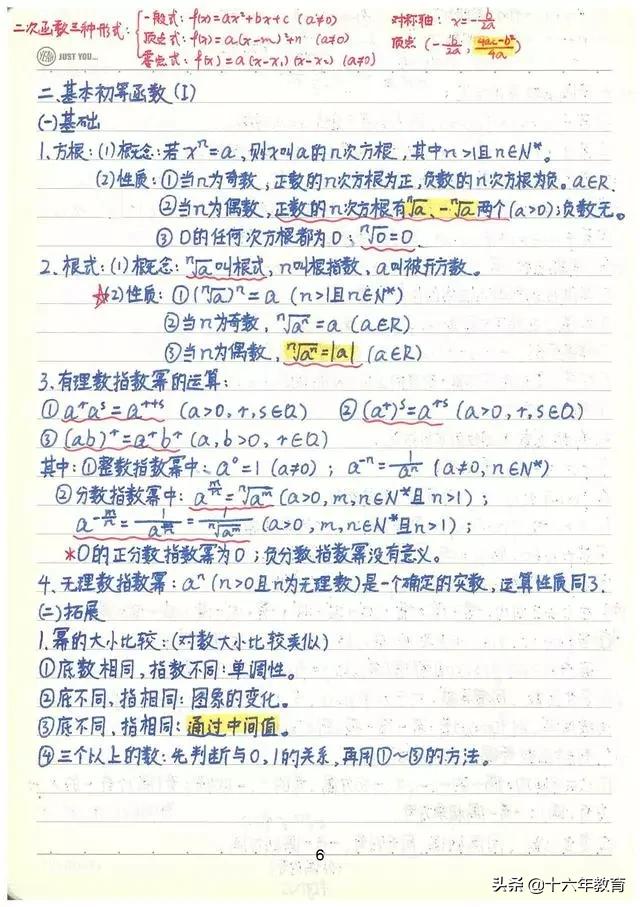 二次函数三种形式: 一般式: f(x)=ax²+bx+c (a≠0) 对称轴: x=-b/2a
顶点式: f(x)=a(x-m)²+n (a≠0) 顶点 (-b/2a, 4ac-b²/4a)
零点式: f(x)=a(x-x₁)(x-x₂) (a≠0)
JUST YOU...
二.基本初等函数(I)
(一)基础
1.方根:(1)概念:若xⁿ=a,则x叫a的n次方根,其中n>1且n∈N*。
(2)性质:①当n为奇数,正数的n次方根为正,负数的n次方根为负。a∈R.
②当n为偶数,正数的n次方根有ⁿ√a、-ⁿ√a两个(a>0);负数无。
③ 0的任何次方根都为0;ⁿ√0=0.
2.根式:(1)概念:ⁿ√a叫根式,n叫根指数,a叫被开方数。
☆(2)性质:①(ⁿ√a)ⁿ=a (n>1且n∈N*)
②当n为奇数,ⁿ√aⁿ=a (a∈R)
③当n为偶数,ⁿ√aⁿ=|a| (a∈R)
3.有理数指数幂的运算:
① aʳaˢ=aʳ⁺ˢ (a>0,r,s∈Q) ② (aʳ)ˢ=aʳ⁺ˢ (a>0,r,s∈Q)
③ (ab)ʳ=aʳbʳ (a,b>0,r∈Q)
其中:①整数指数幂中:a⁰=1 (a≠0); a⁻ⁿ=1/aⁿ (a≠0,n∈N*)
②分数指数幂中:a^(m/n)=ⁿ√aᵐ (a>0,m,n∈N*且n>1);
a^(-m/n)=1/a^(m/n)=1/ⁿ√aᵐ (a>0,m,n∈N*且n>1);
*0的正分数指数幂为0;负分数指数幂没有意义。
4.无理数指数幂:aⁿ(n>0且n为无理数)是一个确定的实数,运算性质同3.
(二)拓展
1.幂的大小比较:(对数大小比较类似)
①底数相同,指数不同:单调性。
②底不同,指相同:图象的变化。
③底不同,指相同:通过中间值。
④三个以上的数:先判断与0,1的关系,再用①~③的方法。
6
头条 @十六年教育